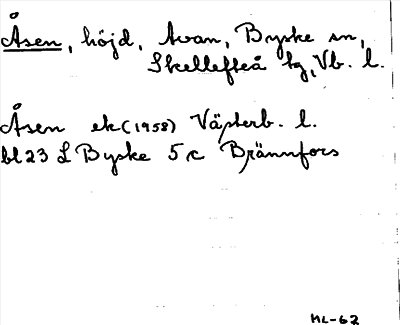 Åsen, höjd, Avan, Byske sn,
Skellefteå tg, Vb. l.
Åsen ek (1958) Västerb. l.
bl 23 L Byske 5 c Brännfors
ML-62